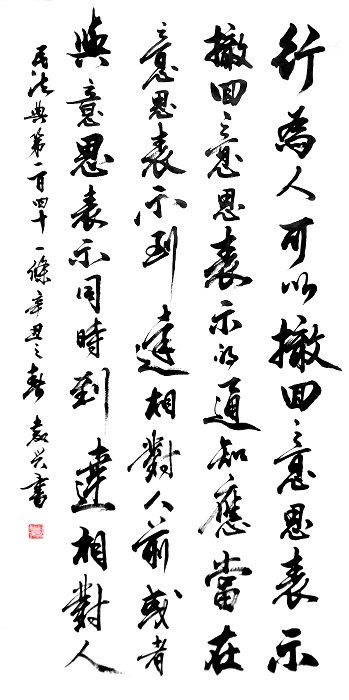 行為人可以撤回意思表示
撤回意思表示的通知應當在
意思表示到達相對人前或者
與意思表示同時到達相對人
民法典第一百四十一條辛丑之春袁興書